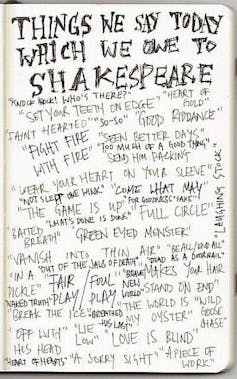 THINGS WE SAY TODAY
WHICH WE OWE TO
SHAKESPEARE
"KNOCK KNOCK! WHO'S THERE?" "HEART OF GOLD"
"SET YOUR TEETH ON EDGE"
"FAINT HEARTED" "SO-SO" "GOOD RIDDANCE"
"FIGHT FIRE WITH FIRE" "SEEN BETTER DAYS"
"TOO MUCH OF A GOOD THING"
"SEND HIM PACKING"
"WEAR YOUR HEART ON YOUR SLEEVE"
"NOT SLEPT ONE WINK" "COME WHAT MAY"
"THE GAME IS UP" "FOR GOODNESS' SAKE"
"WHAT'S DONE IS DONE" FULL CIRCLE"
"LAUGHING STOCK"
"BAITED BREATH" "GREEN EYED MONSTER"
"VANISH INTO THIN AIR" "BE ALL/END ALL"
"OUT OF THE JAWS OF DEATH" "DEAD AS A DOORNAIL"
"IN A PICKLE" "FAIR PLAY/ FOUL PLAY" "BRAVE NEW WORLD" "MAKES YOUR HAIR STAND ON END"
"NAKED TRUTH"
"BREAK THE ICE" "BREATHED HIS LAST" "THE WORLD IS MY OYSTER" "WILD GOOSE CHASE"
"OFF WITH HIS HEAD" "LIE LOW" "LOVE IS BLIND"
"HEART OF HEARTS" "A SORRY SIGHT" "A PIECE OF WORK"